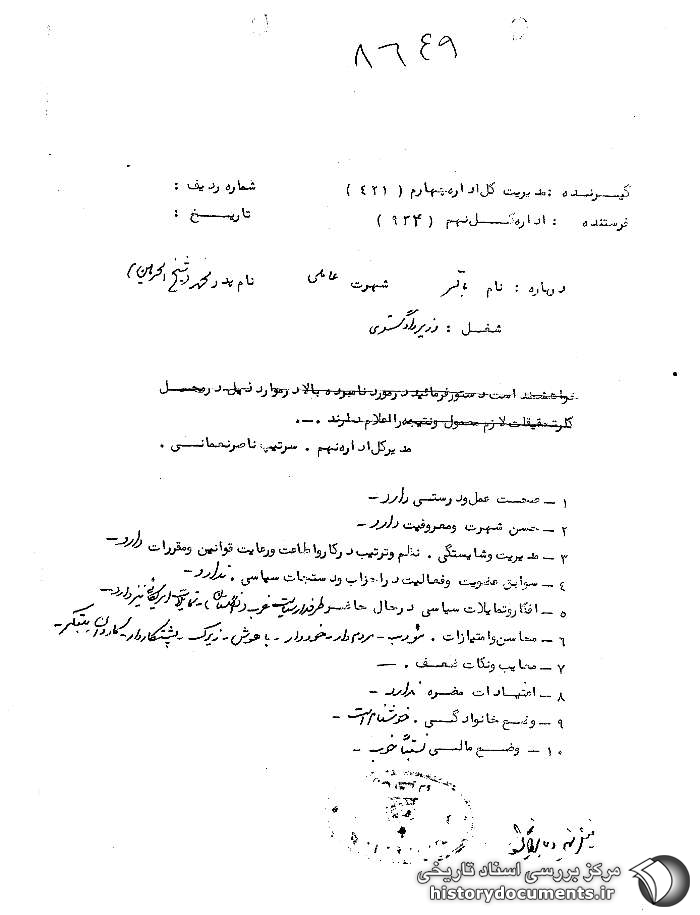 ۸٦٤۹
گیرنده : مدیریت کل اداره چهارم ( ٤۲۱ ) شماره ردیف :
فرستنده : اداره کل نهم ( ۹۳۴ ) تاریخ :
درباره : نام باقر شهرت عاملی نام پدر محمد (شیخ الحرمین)
شغل : وزیر دادگستری
خواهشمند است دستور فرمائید در مورد نامبرده بالا در موارد ذیل در محل
کار تحقیقات لازم معمول و نتیجه را اعلام دارند .-.
مدیرکل اداره نهم . سرتیپ ناصر نعمانی .
۱ - صحت عمل ودرستی دارد -
۲ - حسن شهرت ومعروفیت دارد -
۳ - مدیریت وشایستگی . نظم وترتیب درکار واطاعت ورعایت قوانین ومقررات دارد -
٤ - سوابق عضویت وفعالیت دراحزاب ودستجات سیاسی . ندارد -
۵ - افکار وتمایلات سیاسی درحال حاضر طرفدار سیاست غرب (انگلستان) - تمایلات امریکائی نیز دارد -
٦ - محاسن وامتیازات . مؤدب - مردم دار - خوددار - باهوش - زیرک - پشتکاردار - کاردان - مبتکر -
۷ - معایب ونکات ضعف . -
۸ - اعتیادات مضره ندارد -
۹ - وضع خانوادگی . خوشنام است -
۱۰ - وضع مالی نسبتاً خوب -
مرکز بررسی اسناد تاریخی
historydocuments.ir